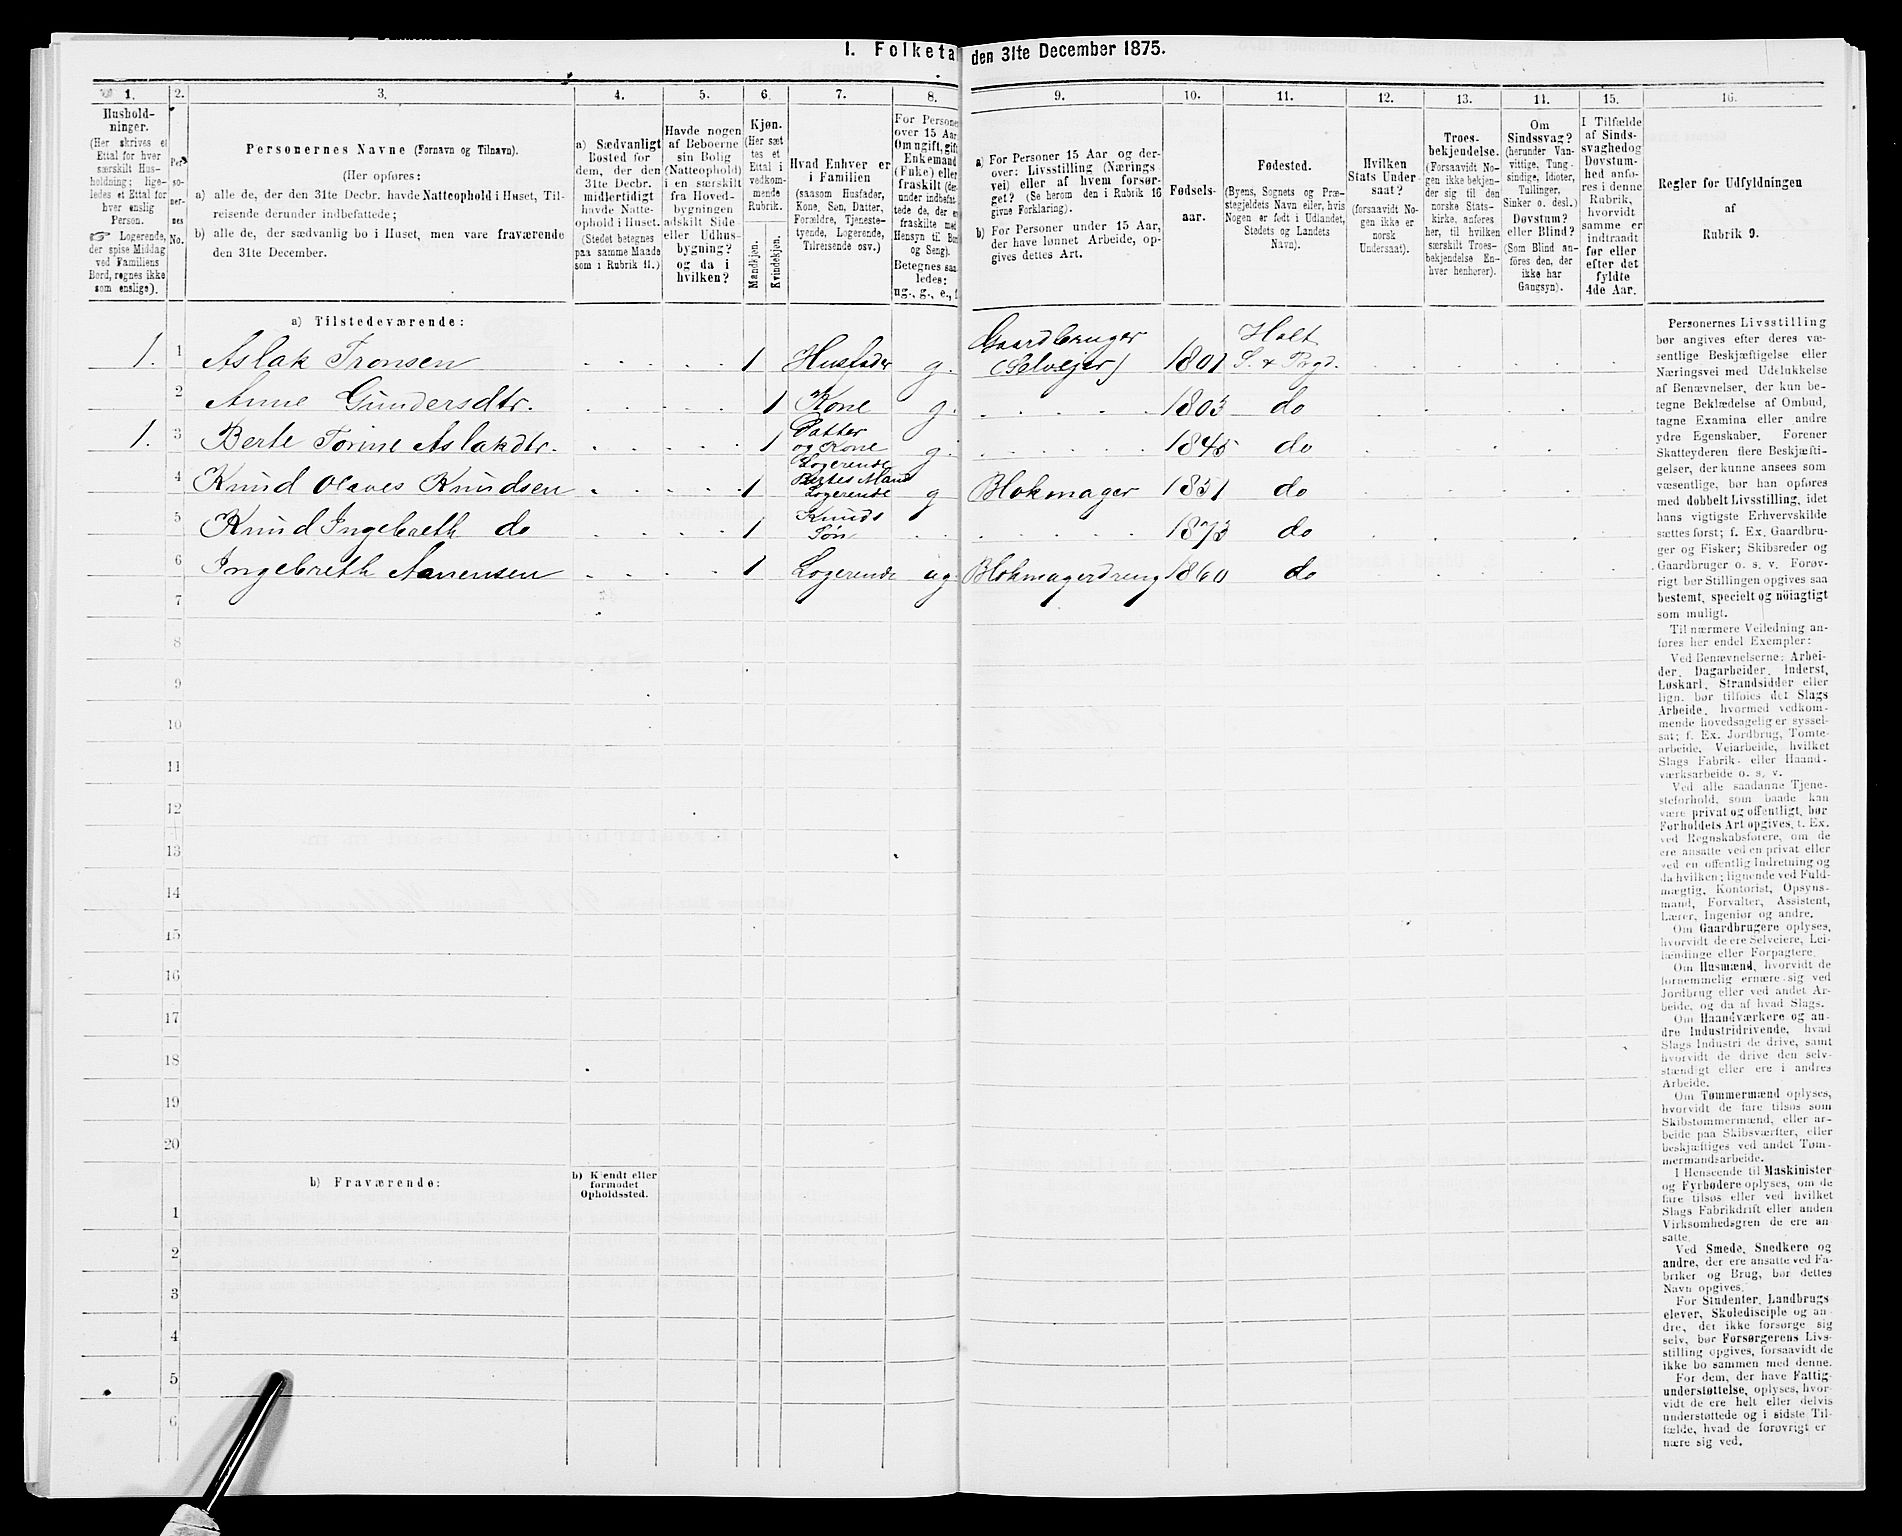 I. Folketal den 31te December 1875.
1. 2. 3. 4. 5. 6. 7. 8. 9. 10. 11. 12. 13. 14. 15. 16.
Hushold-
ninger.
(Her skrives et
Ettal for hver
særskilt Hus-
holdning; lige-
ledes et Ettal for
hver enslig
Person.
☞ Logerende,
der spise Middag
ved Familiens
Bord, regnes ikke
som enslige).
Per-
so-
ner-
nes
No.
Personernes Navne (Fornavn og Tilnavn).
(Her opføres:
a) alle de, der den 31te Decbr. havde Natteophold i Huset, Til-
reisende derunder indbefattede;
b) alle de, der sædvanlig bo i Huset, men vare fraværende
den 31te December.
a) Sædvanligt
Bosted for
dem, der den
31te Decbr.
midlertidigt
havde Natte-
ophold i Huset.
(Stedet betegnes
paa samme Maade
som i Rubrik 11.)
Havde nogen
af Beboerne
sin Bolig
(Natteophold)
i en særskilt
fra Hoved-
bygningen
adskilt Side-
eller Udhus-
bygning?
og da i
hvilken?
Kjøn.
(Her sæt-
tes et
Ettal i
vedkom-
mende
Rubrik.
Mandkjøn.
Kvindekjøn.
Hvad Enhver er
i Familien
(saasom Husfader,
Kone, Søn, Datter,
Forældre, Tjeneste-
tyende, Logerende,
Tilreisende osv.)
For Persone
over 15 Aar
Om ugift, gift
Enkemand
(Enke) eller
fraskilt (der-
under indbefat-
tede de, der er
fraskilte med
Hensyn til Bord
og Seng).
Betegnes saa-
ledes:
ug., g., e., f.
a) For Personer 15 Aar og der-
over: Livsstilling (Nærings-
vei) eller af hvem forsør-
get? (Se herom den i Rubrik 16
givne Forklaring).
b) For Personer under 15 Aar,
der have lønnet Arbeide, op-
gives dettes Art.
Fødsels-
aar.
Fødested.
(Byens, Sognets og Præ-
stegjeldets Navn eller, hvis
Nogen er født i Udlandet,
Stedets og Landets
Navn).
Hvilken
Stats Under-
saat?
(forsaavidt No-
gen ikke er
norsk
Undersaat).
Troes-
bekjendelse.
(Forsaavidt No-
gen ikke bekjen-
der sig til den
norske Stats-
kirke, anføres
her, til hvilken
særskilt Troes-
bekjendelse En-
hver henhører).
Om
Sindssvag?
(herunder Van-
vittige, Tung-
sindige, Idioter,
Tullinger,
Sinker o. desl.)
Døvstum?
eller Blind?
(Som Blind an-
føres den, der
ikke har
Gangsyn).
I Tilfælde
af Sinds-
svaghed og
Døvstum-
hed anfø-
res i denne
Rubrik,
hvorvidt
samme er
indtraadt
før eller
efter det
fyldte
4de Aar.
Regler for Udfyldningen
af
Rubrik 9.
a) Tilstedeværende:
1. 1 Aslak Tronsen 1 Husfader g. Gaardbruger (Selvejer) 1801 Holt S. & Prgd.
2 Anne Gundersdtr. 1 Kone g. 1803 do
1. 3 Berte Torine Aslakdtr. 1 Datter og Kone Logerende g. 1845 do
4 Knud Olaves Knudsen 1 Bertes Mand Logerende g Blokmager 1851 do
5 Knud Ingebreth do 1 Knuds Søn 1873 do
6 Ingebreth Aanensen 1 Logerende ug. Blokmagerdreng 1860 do
7
8
9
10
11
12
13
14
15
16
17
18
19
20
b) Fraværende: b) Kjendt eller
formodet
Opholdssted.
1
2
3
4
5
6
Personernes Livsstilling
bør angives efter deres væ-
sentlige Beskjæftigelse eller
Næringsvei med Udelukkelse
af Benævnelser, der kun be-
tegne Beklædelse af Ombud,
tagne Examina eller andre
ydre Egenskaber. Forener
Skatteyderen flere Beskjæfti-
gelser, der kunne ansees som
væsentlige, bør han opføres
med dobbelt Livsstilling, idet
hans vigtigste Erhvervskilde
sættes først; f. Ex. Gaardbru-
ger og Fisker; Skibsreder og
Gaardbruger o. s. v. Forøv-
rigt bør Stillingen opgives saa
bestemt, specielt og nöiagtigt
som muligt.
Til nærmere Veiledning an-
føres her endel Exempler:
Ved Benævnelserne: Arbei-
der, Dagarbeider, Inderst,
Løskarl, Strandsidder eller
lign. bør tilføies det Slags
Arbeide, hvormed vedkom-
mende hovedsagelig er syssel-
sat; f. Ex. Jordbrug, Tomte-
arbeide, Veiarbeide, hvilket
Slags Fabrik- eller Haand-
værksarbeide o. s. v.
Ved alle saadanne Tjene-
steforhold, som baade kan
være privat og offentligt, bør
Forholdets Art opgives, f. Ex.
ved Regnskabsførere, om de
ere ansatte ved en privat eller
ved en offentlig Indretning og
da hvilken; lignende ved Fuld-
mægtig, Kontorist, Opsyns-
mand, Forvalter, Assistent,
Lærer, Ingeniør og andre.
Om Gaardbrugere oplyses,
hvorvidt de ere Selveiere, Lei-
lændinge eller Forpagtere.
Om Husmænd, hvorvidt de
fornemmelig ernære sig ved
Jordbrug eller ved andet Ar-
beide, og da af hvad Slags.
Om Haandværkere og an-
dre Industridrivende, hvad
Slags Industri de drive, samt
hvorvidt de drive den selv-
stændigt eller ere i andres
Arbeide.
Om Tømmermænd oplyses,
hvorvidt de fare tilsøs som
Skibstømmermænd, eller ar-
beide paa Skibsværfter, eller
beskjæftiges ved andet Tøm-
mermandsarbeide.
I Henseende til Maskinister
og Fyrbødere oplyses, om de
fare tilsøs eller ved hvilket
Slags Fabrikdrift eller anden
Virksomhedsgren de ere an-
satte.
Ved Smede, Snedkere og
andre, der ere ansatte ved Fa-
briker og Brug, bør dettes
Navn opgives.
For Studenter, Landbrugs-
elever, Skoledisciple og an-
dre, det ikke forsørge sig
selv, bør Forsørgerens Livs-
stilling opgives, forsaavidt de
ikke bo sammen med denne.
For dem, der have Fattig-
understøttelse, oplyses, hvor-
vidt de ere helt eller delvis
understøttede og i sidste Til-
fælde, hvad de forøvrigt er-
nære sig ved.